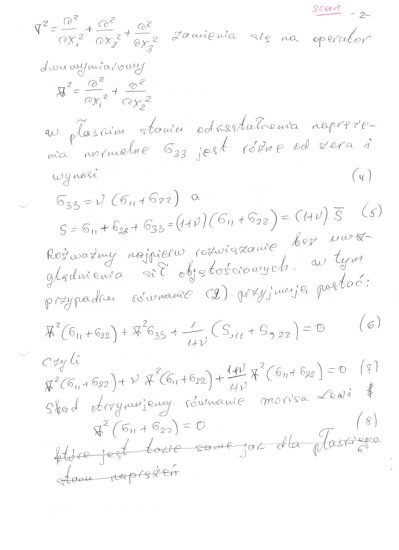 scan -2-
∇² = ∂²/∂x₁² + ∂²/∂x₂² + ∂²/∂x₃² zamienia się na operator
dwuwymiarowy
∇² = ∂²/∂x₁² + ∂²/∂x₂²
w płaskim stanie odkształcenia napręże-
nia normalne σ₃₃ jest różne od zera i
wynosi (4)
σ₃₃ = ν (σ₁₁ + σ₂₂) a
S = σ₁₁ + σ₂₂ + σ₃₃ = (1+ν)(σ₁₁ + σ₂₂) = (1+ν) S̄ (5)
Rozważmy najpierw rozwiązanie bez uwz-
ględnienia sił objętościowych. w tym
przypadku równanie (2) przyjmują postać:
∇²(σ₁₁ + σ₂₂) + ∇²σ₃₃ + 1/1+ν (S,₁₁ + S,₂₂) = 0 (6)
czyli
∇²(σ₁₁ + σ₂₂) + ν ∇²(σ₁₁ + σ₂₂) + 1+ν/1+ν ∇²(σ₁₁ + σ₂₂) = 0 (7)
Skąd otrzymujemy równanie morisa Lewi
∇²(σ₁₁ + σ₂₂) = 0 (8)
które jest takie same jak dla płaskiego
stanu naprężeń